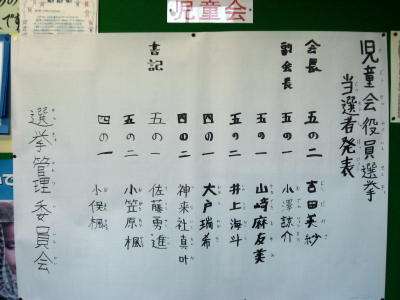 児童会
児童会役員選挙
当選者発表
会長 五の二 吉田美紗
副会長 五の一 小澤諒介
五の一 山崎麻友美
五の二 井上海斗
四の一 大戸瑞希
四の二 神来社真叶
書記 五の一 佐藤勇進
五の二 小笠原楓
四の一 小俣楓
選挙管理委員会